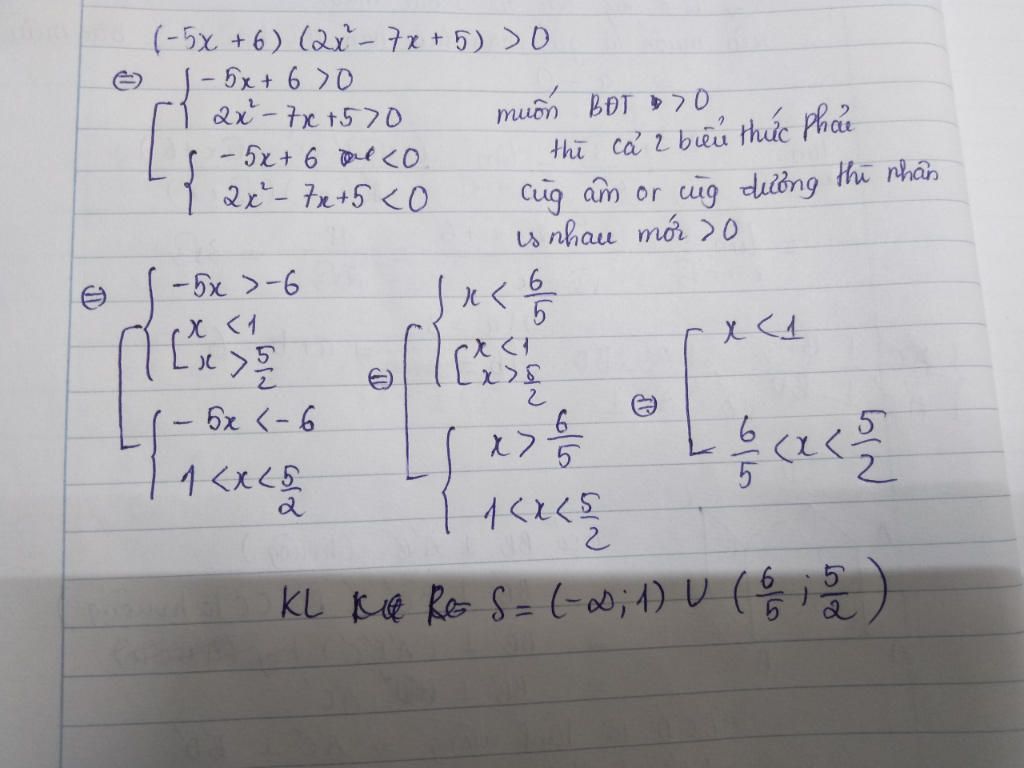 (-5x + 6) (2x² - 7x + 5) > 0
⇔ [ { -5x + 6 > 0
2x² - 7x + 5 > 0
{ -5x + 6 < 0
2x² - 7x + 5 < 0
muốn BĐT > 0
thì cả 2 biểu thức phải
cùg âm or cùg dương thì nhân
vs nhau mới > 0
⇔ [ { -5x > -6
[ x < 1
x > 5/2
{ -5x < -6
1 < x < 5/2
⇔ [ { x < 6/5
[ x < 1
x > 5/2
{ x > 6/5
1 < x < 5/2
⇔ [ x < 1
6/5 < x < 5/2
KL S = (-∞; 1) ∪ (6/5; 5/2)